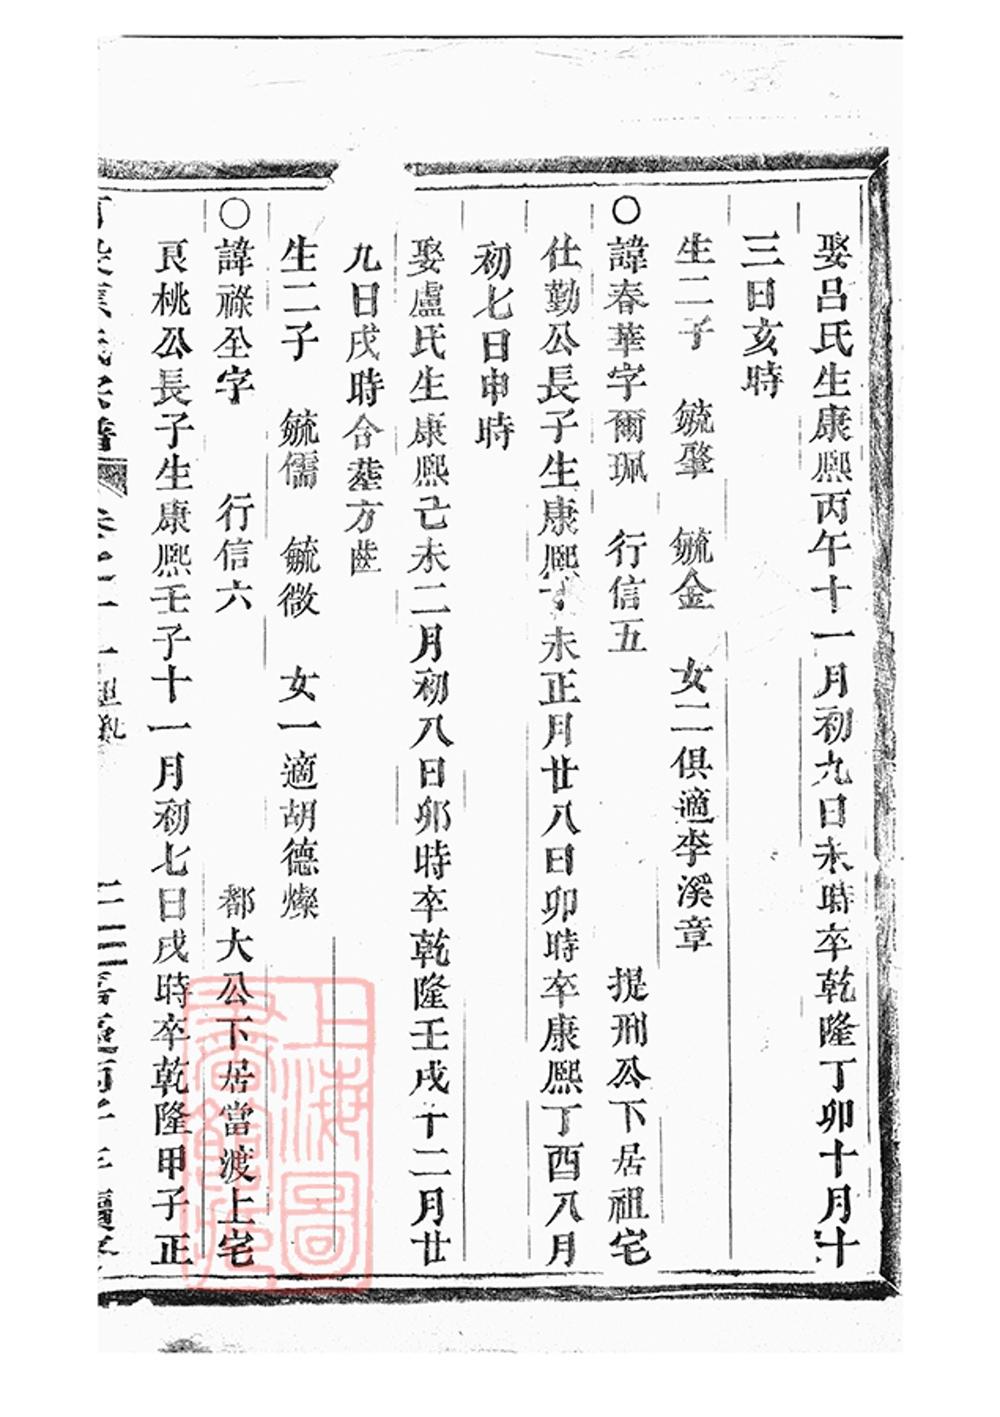 娶呂氏生康熙丙午十一月初九日未時卒乾隆丁卯十月十
三日亥時
生二子 毓肇 毓金 女二俱適李溪章
〇諱春華字爾珮 行信五 提刑公下居祖宅
仕勤公長子生康熙丁未正月廿八日卯時卒康熙丁酉八月
初七日申時
娶盧氏生康熙己未二月初八日卯時卒乾隆壬戌十二月廿
九日戌時合塟方
生二子 毓儒 毓微 女一適胡德燦
〇諱祿全字 行信六 都大公下居當渡上宅
良桃公長子生康熙壬子十一月初七日戌時卒乾隆甲子正
氏宗譜
上海圖
書館藏